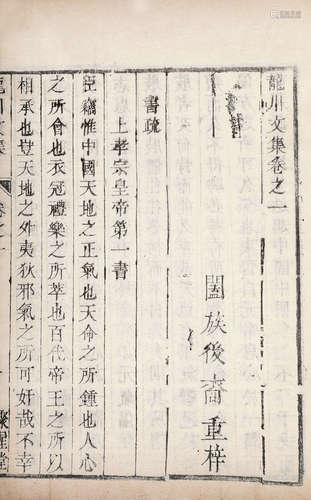 龍川文集卷之一
闔族後裔重梓
書疏
上孝宗皇帝第一書
臣竊惟中國天地之正氣也天命之所鍾也人心
之所會也衣冠禮樂之所萃也百代帝王之所以
相承也豈天地之外夷狄邪氣之所可奸哉不幸
龍川文集
卷之一
聚星堂